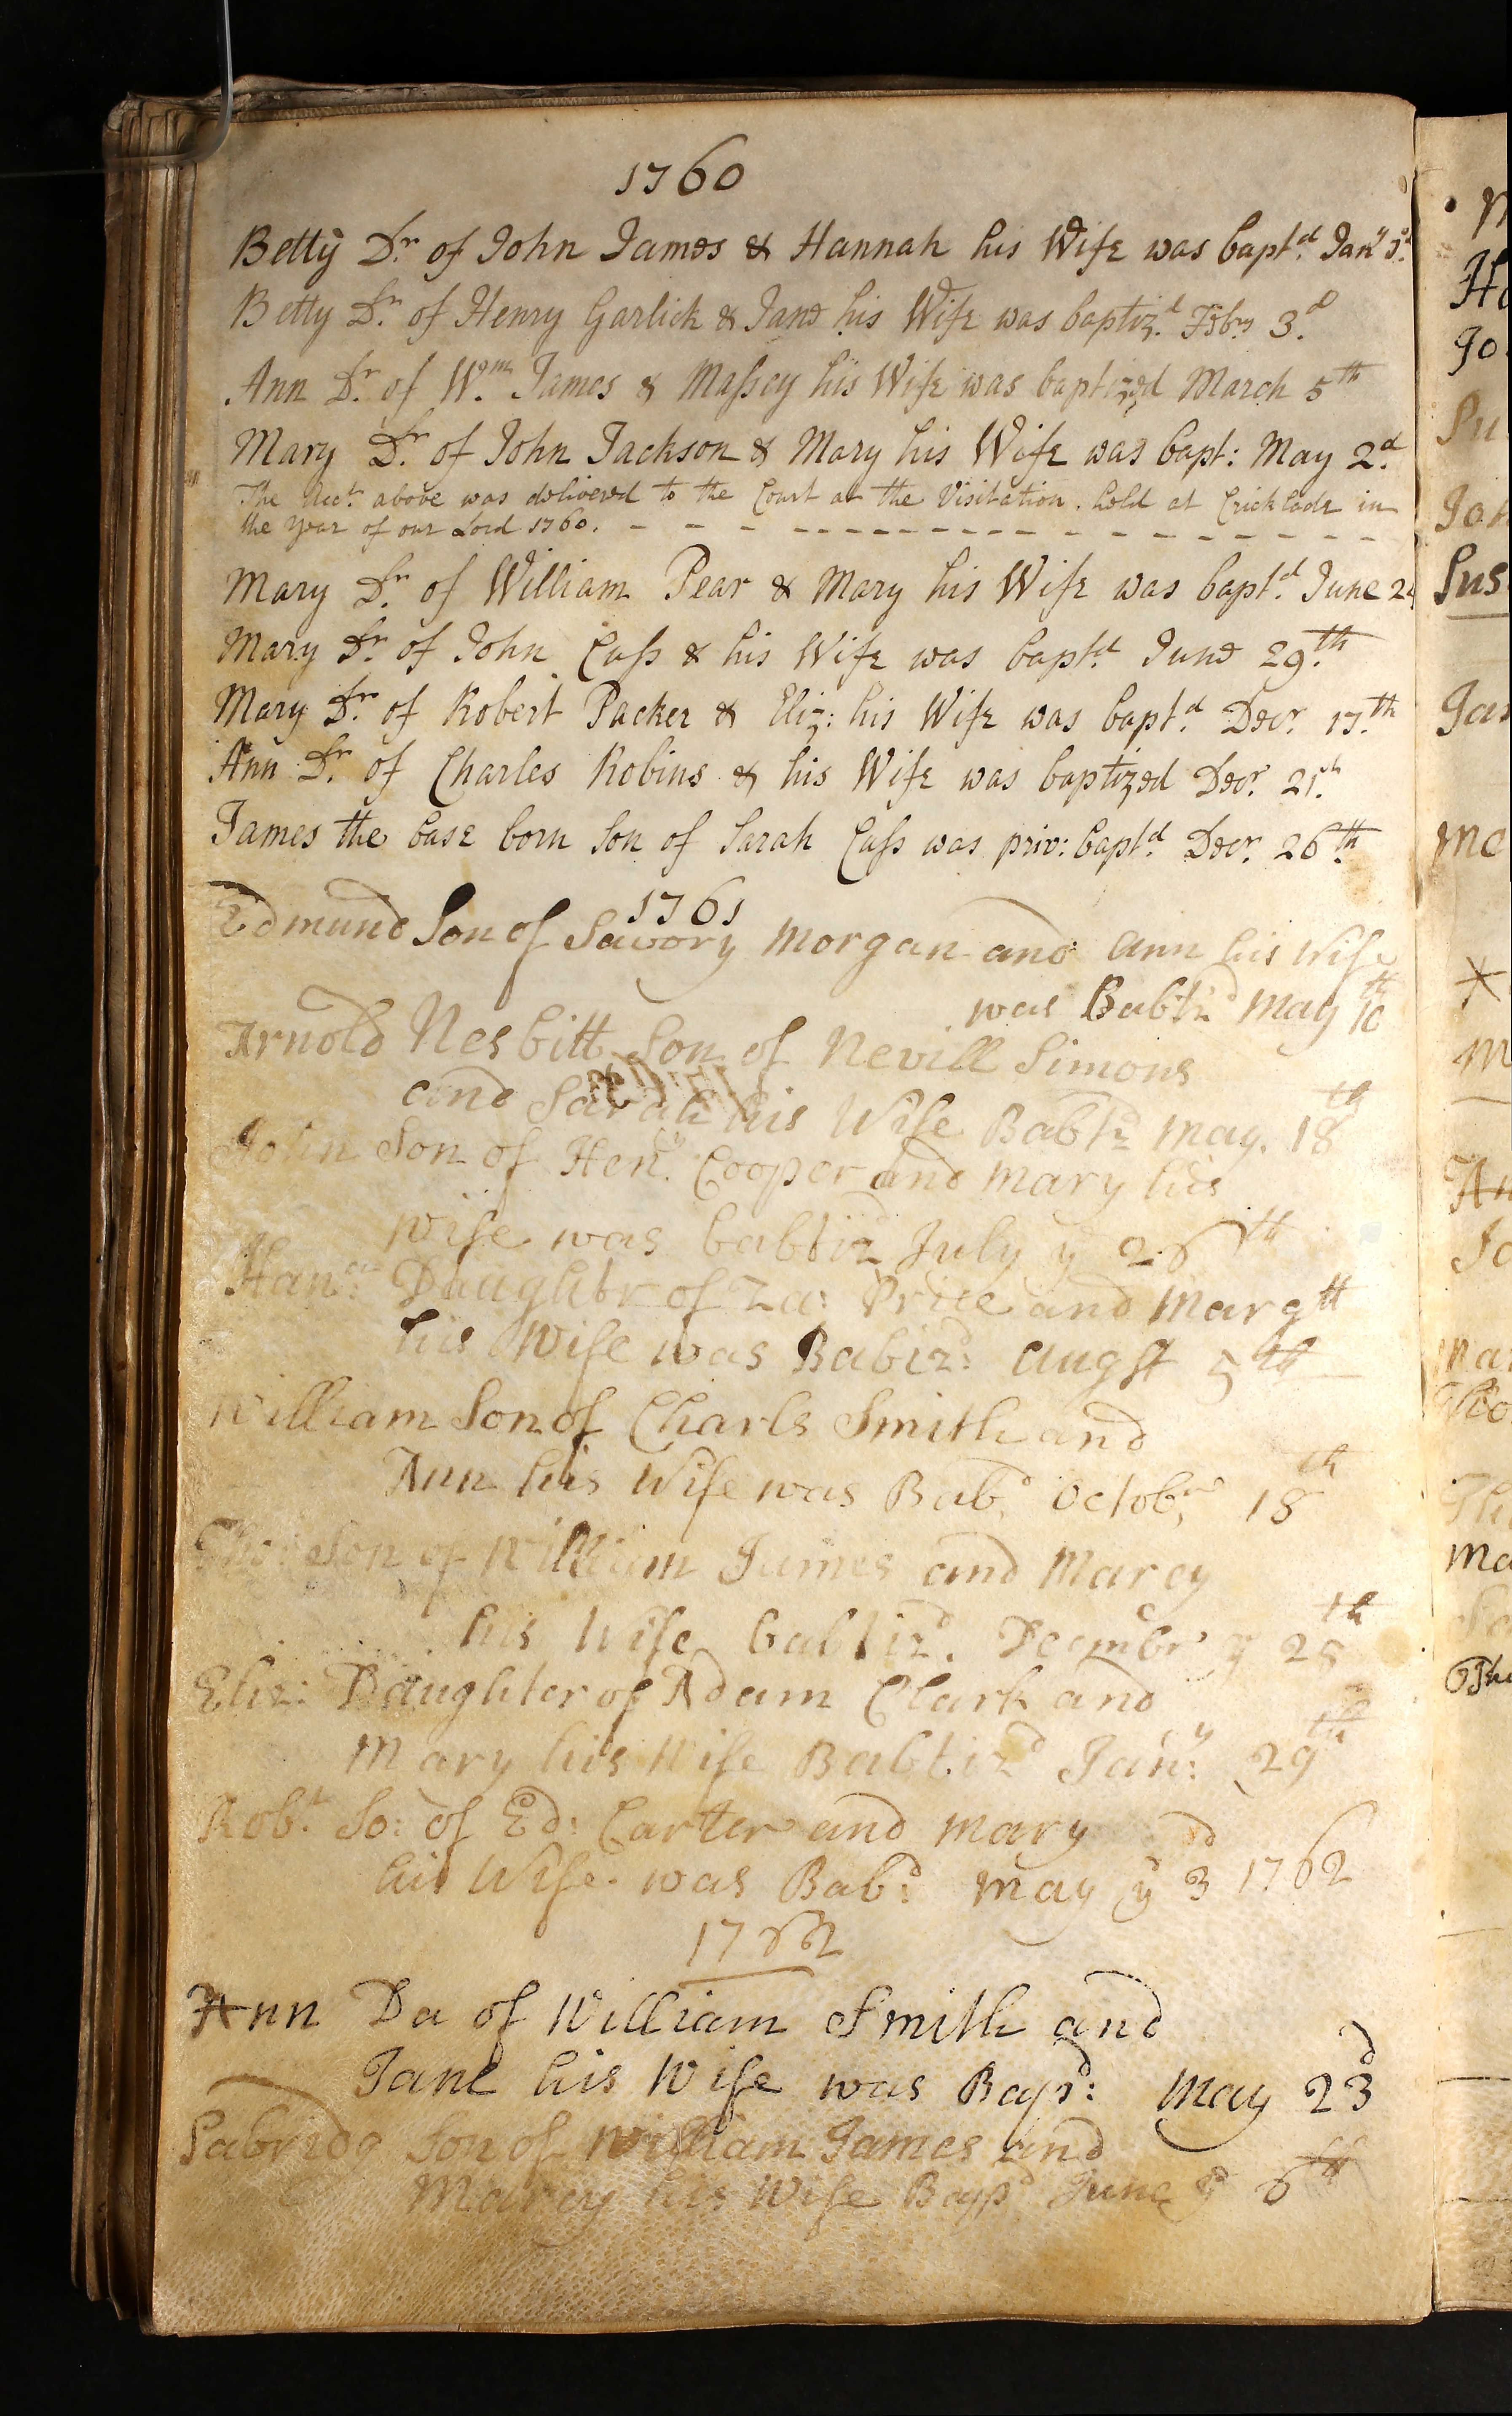 1760
Betty Dr. of John James & Hannah his Wife was bapt.d Jany
Betty Dr. of Henry Garlick & Jane his Wife was baptiz.d Feby 3.d
Ann Dr. of Wm. James & Massey his Wife was baptized March 5th
Mary Dr. of John Jackson & Mary his Wife was bapt: May 2.d
The Acct. above was delivered to the Court at the Visitation held at Cricklade in
the Year of our Lord 1760.
Mary Dr. of William Pear & Mary his Wife was bapt.d June
Mary Dr. of John Cass & his Wife was bapt.d June 29.th
Mary Dr. of Robert Packer & Eliz: his Wife was bapt.d Decr. 17.th
Ann Dr. of Charles Robins & his Wife was baptized Decr. 21.
James the base born Son of Sarah Cass was priv: bapt.d Decr. 26th
1761
Edmund Son of Savory Morgan and Ann his Wife
was Babtzd May 10th
Arnold Nesbitt Son of Nevill Simons
and Sarah his Wife Babtzd May. 18th
John Son of Heny. Cooper and Mary his
Wife was babtizd July y 26th
Han: Daughtr of Za: Price and Margtt
his Wife was Babizd: Augst 5th
William Son of Charls Smith and
Ann his Wife was Babd. Octobr 18th
Tho: Son of William James and Marcy
his Wife babtizd. Decmbr y 25th
Eliz: Daughter of Adam Clark and
Mary his Wife Babtizd Jany: 29th
Robt. So: of Ed: Carter and Mary
his Wife was Babd: May y 3d 1762
1762
Ann Da of William Smith and
Jane his Wife was Bapd: May 23d
Son of William James and
Marcy his Wife Bapd June y 6th